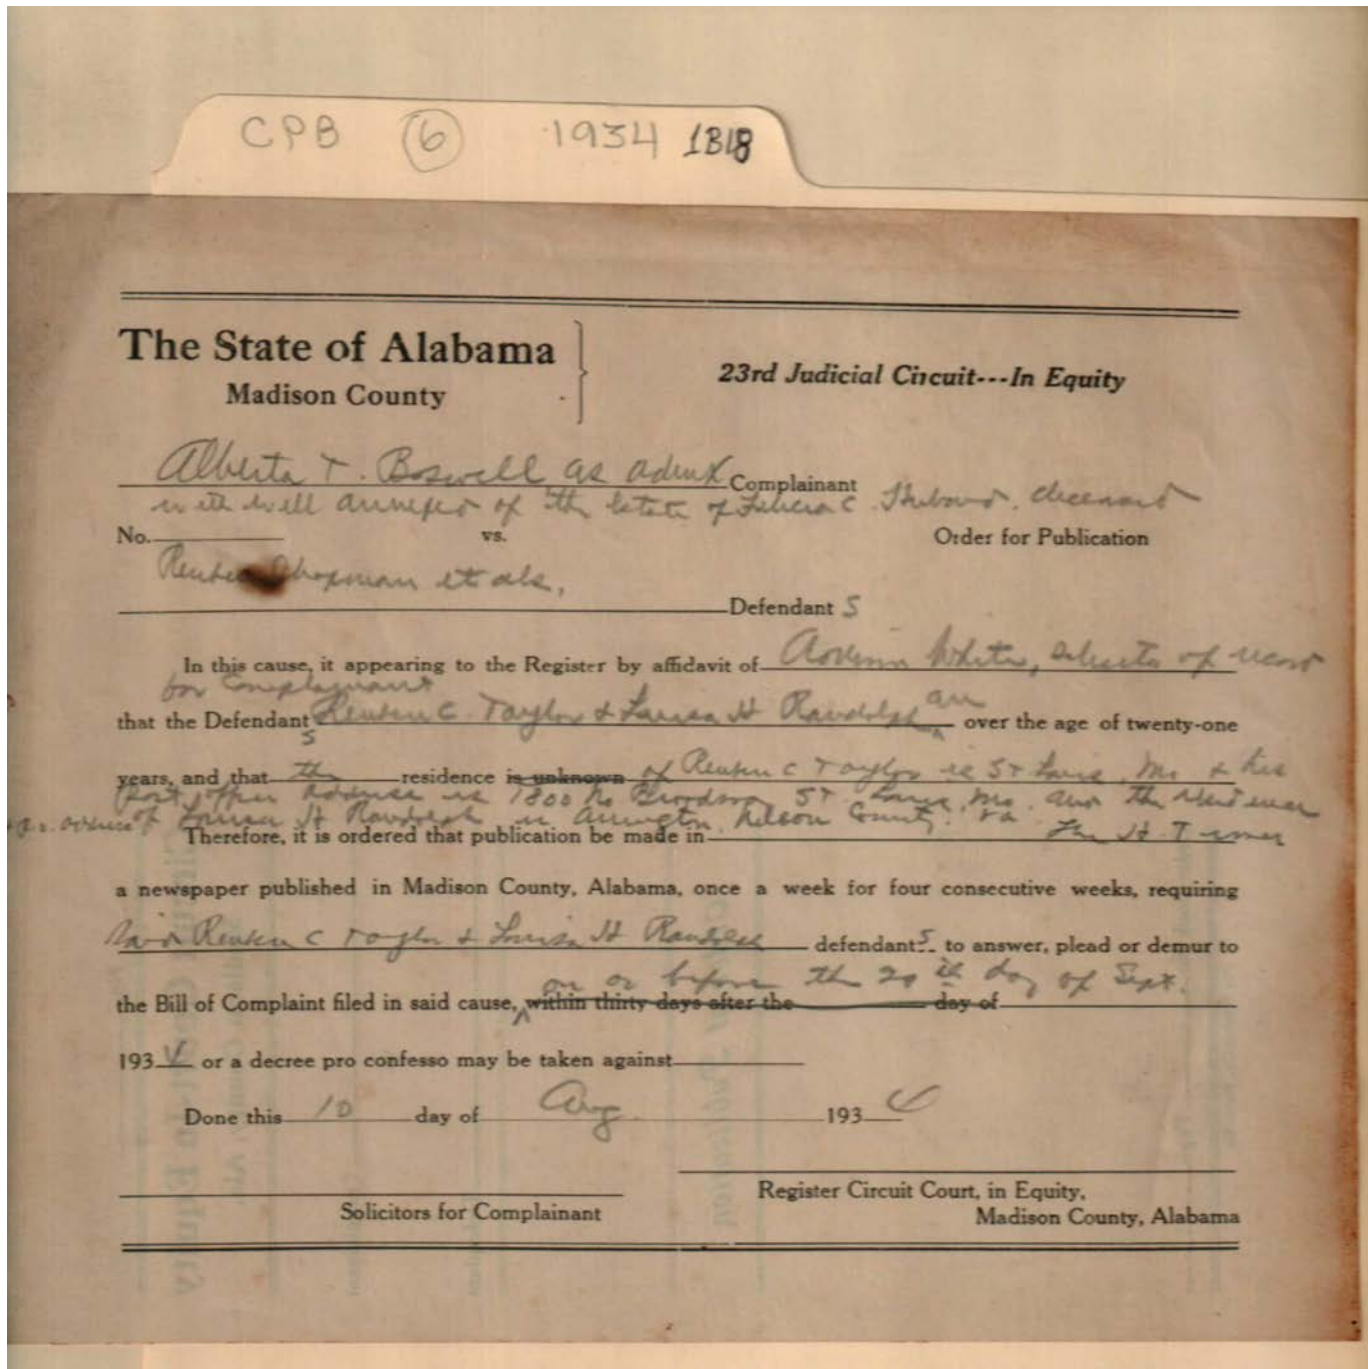 CPB 6 1934 1318
The State of Alabama
Madison County
23rd Judicial Circuit---In Equity
Alberta T. Boswell as admx Complainant
with will annexed of the Estate of C. deceased
No. vs. Order for Publication
Reuben Chapman et als,
Defendant S
In this cause, it appearing to the Register by affidavit of White, of record
for Complainant
that the Defendant s Reuben C Taylor & Louisa H Randolph are over the age of twenty-one
years, and that the residence is unknown of Reuben C Taylor is St Louis, Mo & his
post office address is 1800 No Broadway St. Louis, Mo. and the residence
of Louisa H Randolph is Arrington, Nelson County, Va
Therefore, it is ordered that publication be made in
a newspaper published in Madison County, Alabama, once a week for four consecutive weeks, requiring
said Reuben C Taylor & Louisa H Randolph defendant s to answer, plead or demur to
on or before the 20th day of Sept.
the Bill of Complaint filed in said cause, within thirty days after the day of
1934 or a decree pro confesso may be taken against
Done this 10 day of Aug. 1934
Solicitors for Complainant
Register Circuit Court, in Equity,
Madison County, Alabama